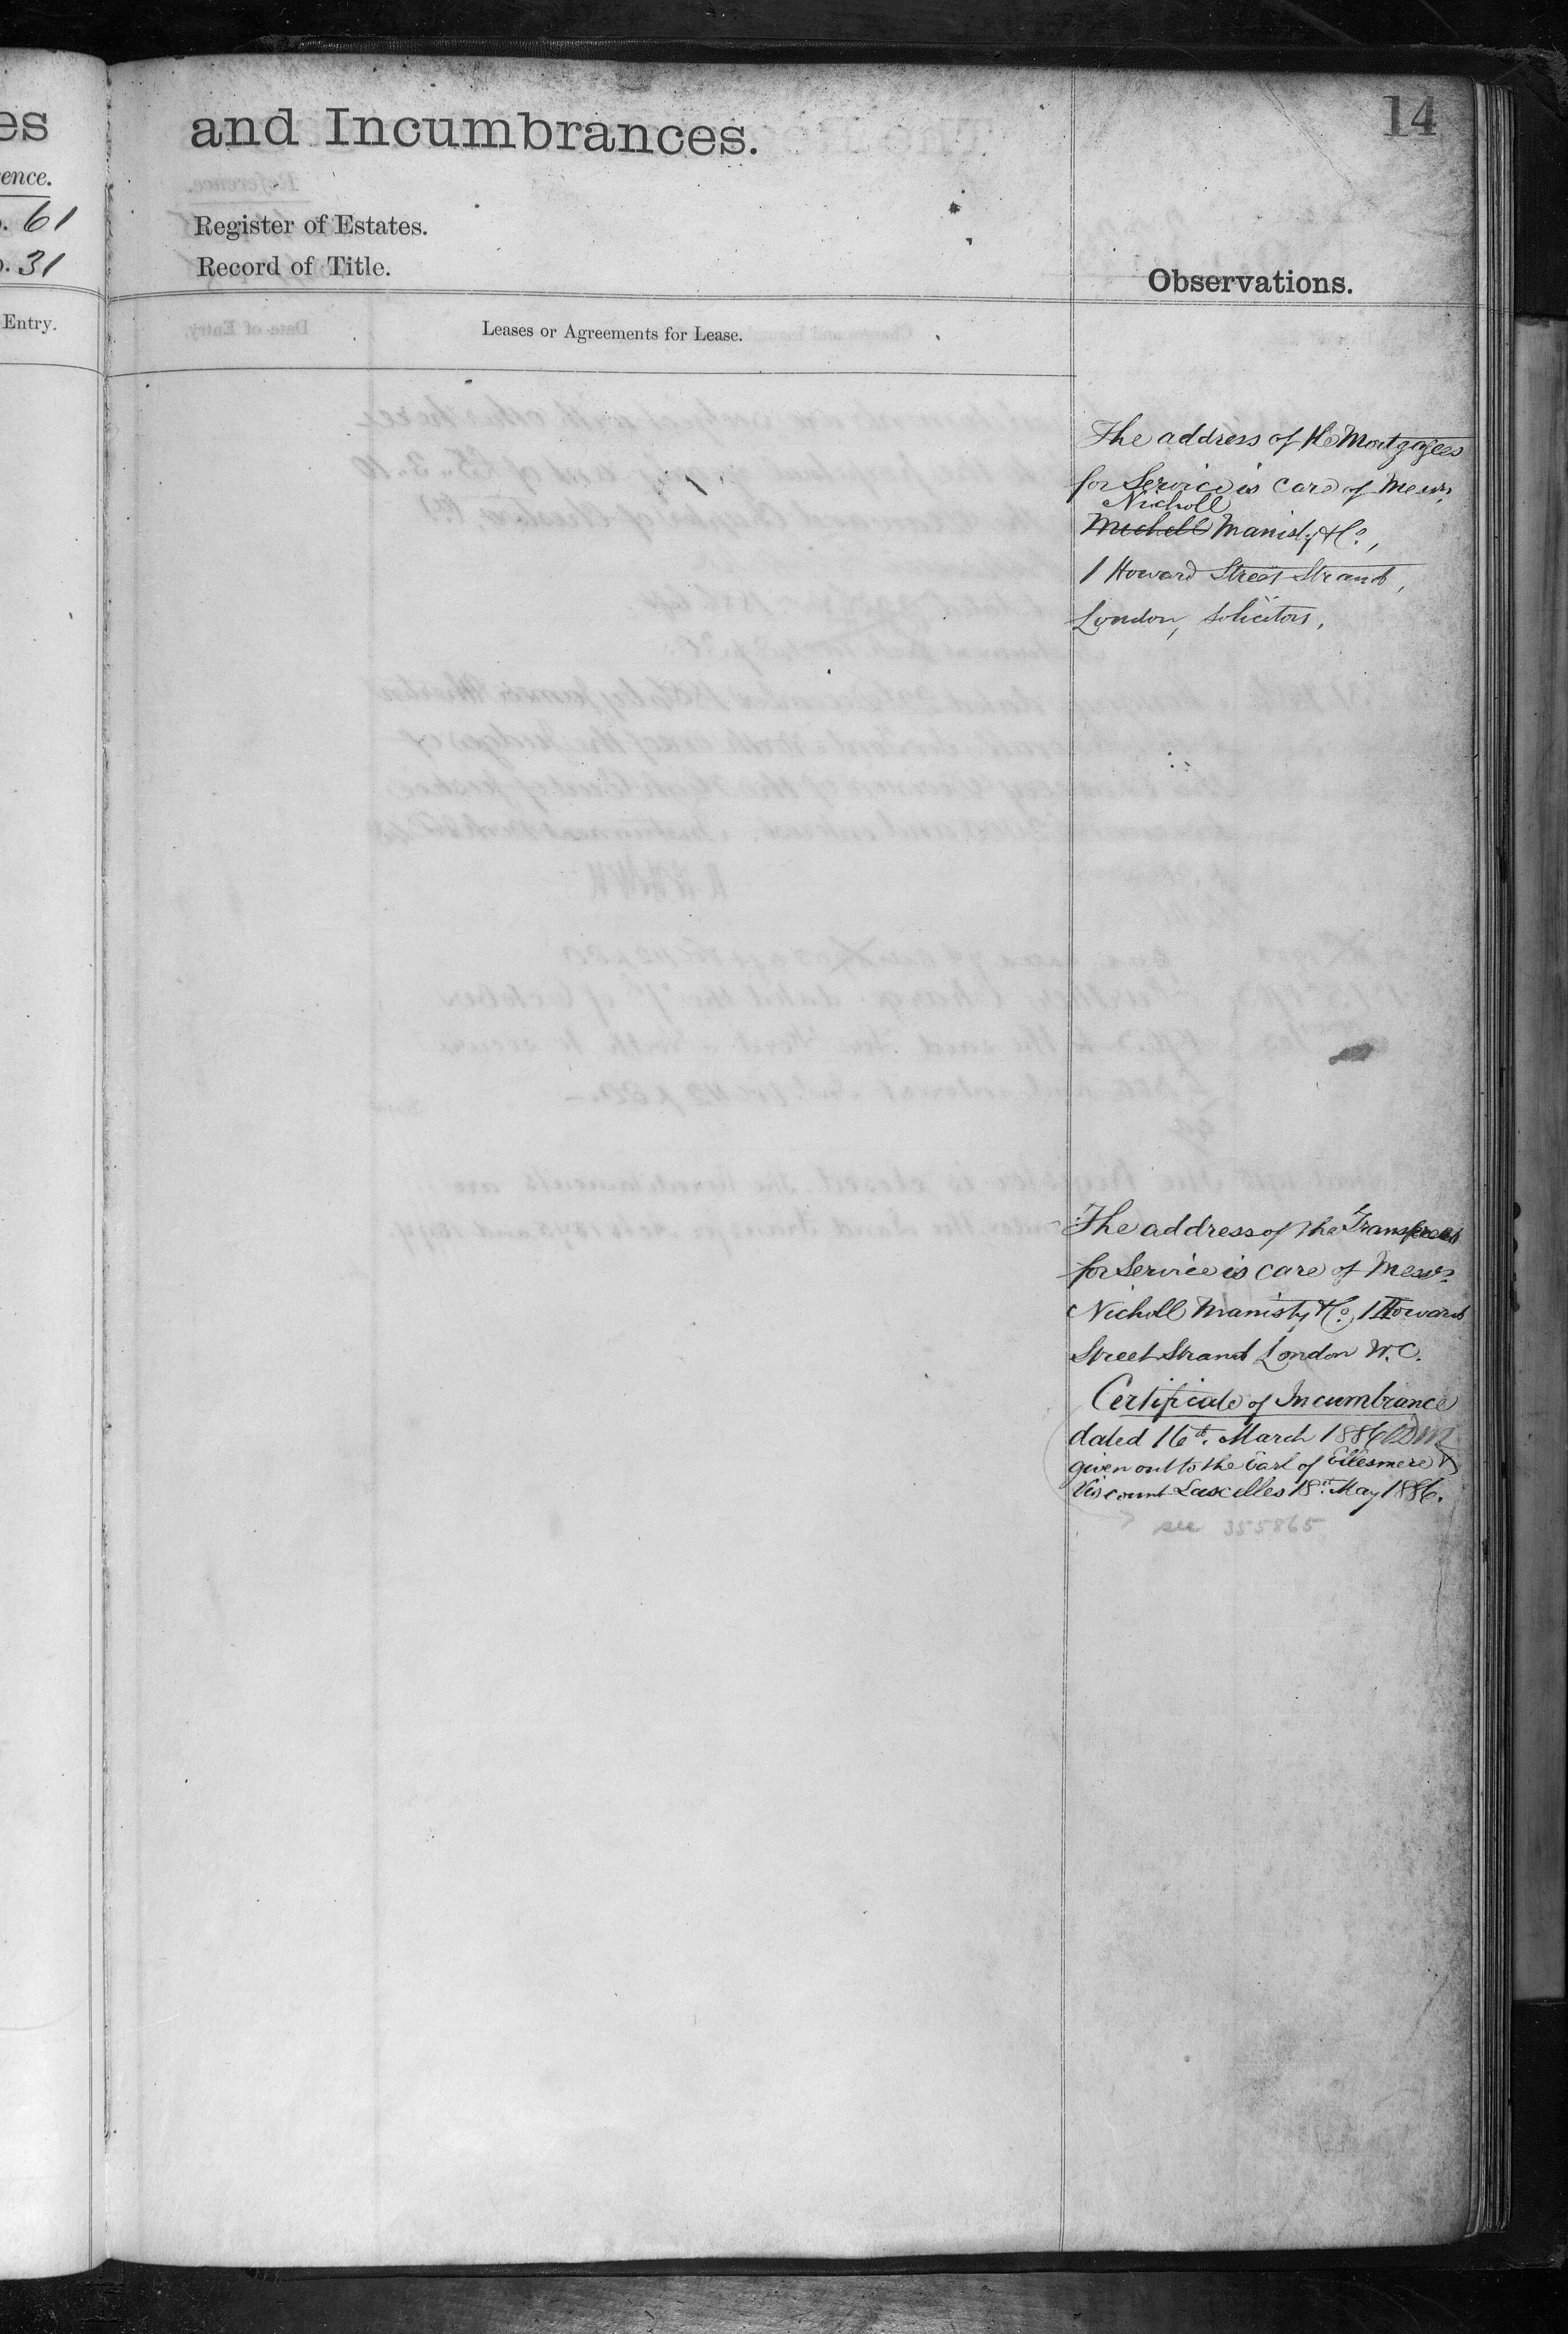 es
ence.
. 61
. 31
Entry.
and Incumbrances.
14
Register of Estates.
Record of Title.
Observations.
Leases or Agreements for Lease.
The address of the Mortgagees
for Service is care of Messrs
Nicholl
Michell Manisty & Co.,
1 Howard Street Strand,
London, Solicitors.
The address of the Transferees
for Service is care of Messrs
Nicholl Manisty & Co. 1 Howard
Street Strand London W.C.
Certificate of Incumbrance
dated 16th March 1886
given out to the Earl of Ellesmere &
Viscount Lascelles 18th May 1886.
see 355865